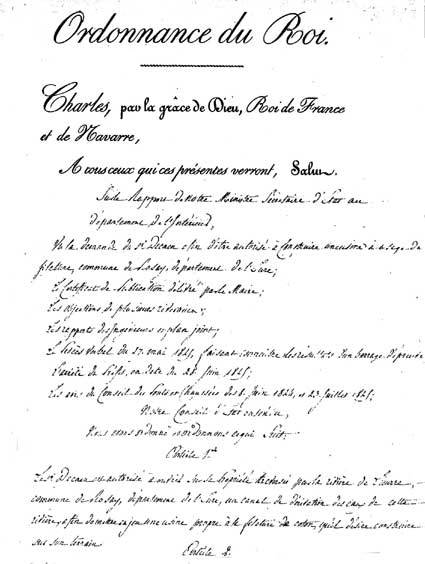 Ordonnance du Roi.
Charles, par la grâce de Dieu, Roi de France
et de Navarre,
A tous ceux qui ces présentes verront, Salut.
Sur le Rapport de notre Ministre Secrétaire d'Etat au
département de l'Intérieur,
Vu la demande de Sr. Decaen afin d'être autorisé à Construire une usine à usage de
filature, commune de , département de l'Eure;
Le Certificat de Publication délivré par le Maire;
Les objections de plusieurs riverains;
Les rapports des Ingénieurs et plan joint;
Le du 27 mai 1825, faisant connaître les
L'avis du Préfet, en date du 28 Juin 1825;
Les avis du Conseil des Ponts et Chaussées des 8 Juin 1824, et 23 Juillet 1825;
Notre Conseil d'Etat entendu,
Nous avons ordonné et ordonnons ce qui Suit.
Article 1er
Le Sr. Decaen est autorisé à sur la propriété par la rivière de ,
commune de , département de l'Eure, un canal de dérivation des eaux de cette
rivière, afin de mettre en jeu une usine propre à la filature de coton, qu'il désire construire
sur son terrain
Article 2.